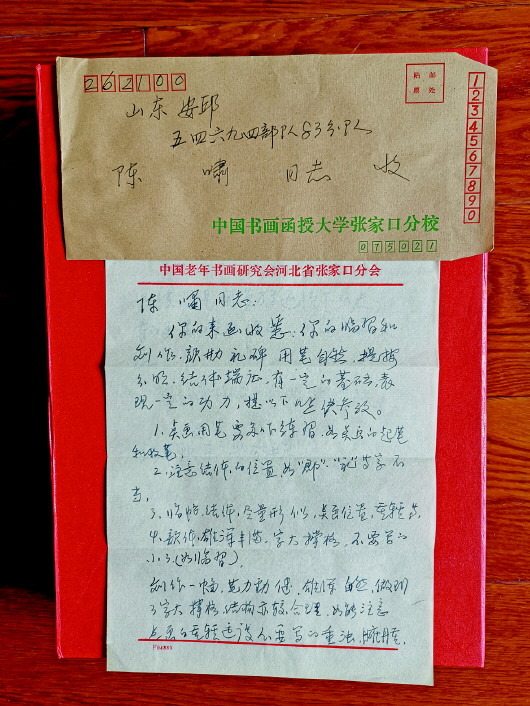 262100
贴邮
票处
1234567890
山东 安邱
五四六九四部队83分队
陈 啸 同志 收
中国书画函授大学张家口分校
075021
中国老年书画研究会河北省张家口分会
陈 啸 同志:
你的来函收悉:你的临习和
创作,颜勤礼碑 用笔自然,提按
分明,结体端正,有一定的基础,表
现一定的功力,提以下几点供参考。
1、点画用笔要多下练习,如点画的起笔
和收笔,
2、注意结体,的位置,如"郡"、等字不
当,
3、临帖结体,尽量形似,点画位置,
4、颜体,雄浑丰满,字大撑格,不要写的
小了(如临习),
创作一幅,笔力劲健,雄浑自然,做到
了字大撑格,结构亦较合理,如能注意
点画的 不要写的重浊,臃肿